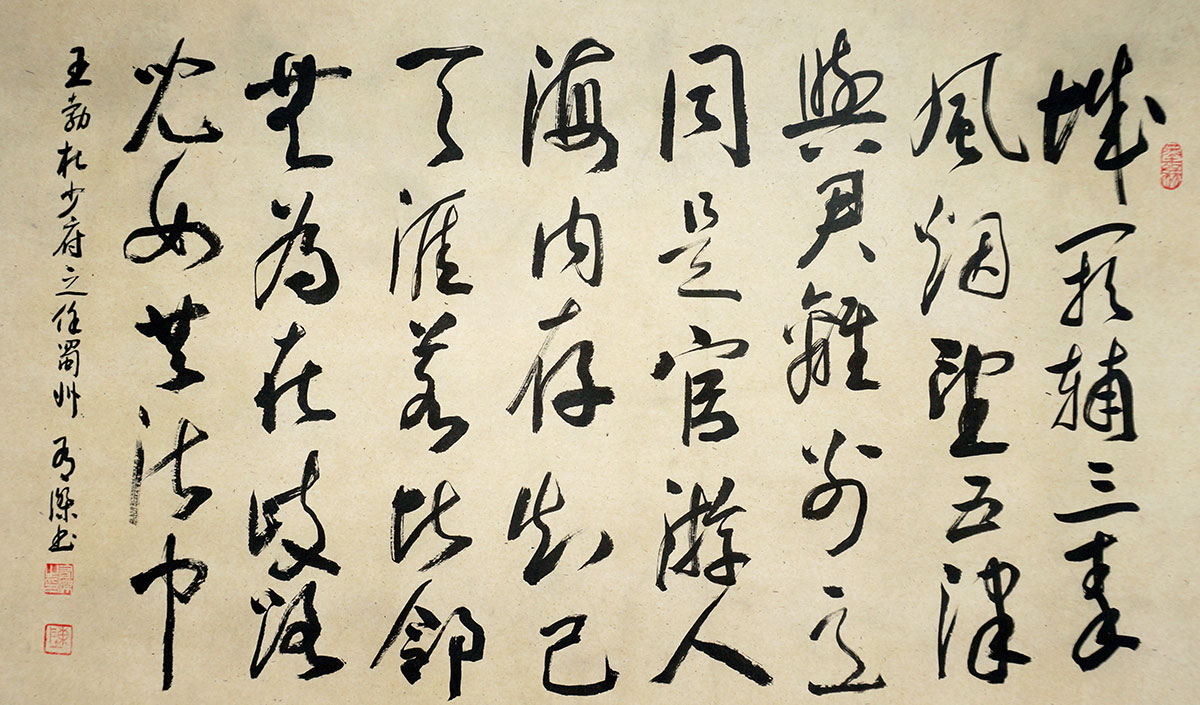 城阙辅三秦
風烟望五津
與君離别意
同是宦游人
海内存知己
天涯若比鄰
無為在歧路
兒女共沾巾
王勃杜少府之任蜀州 有傑书